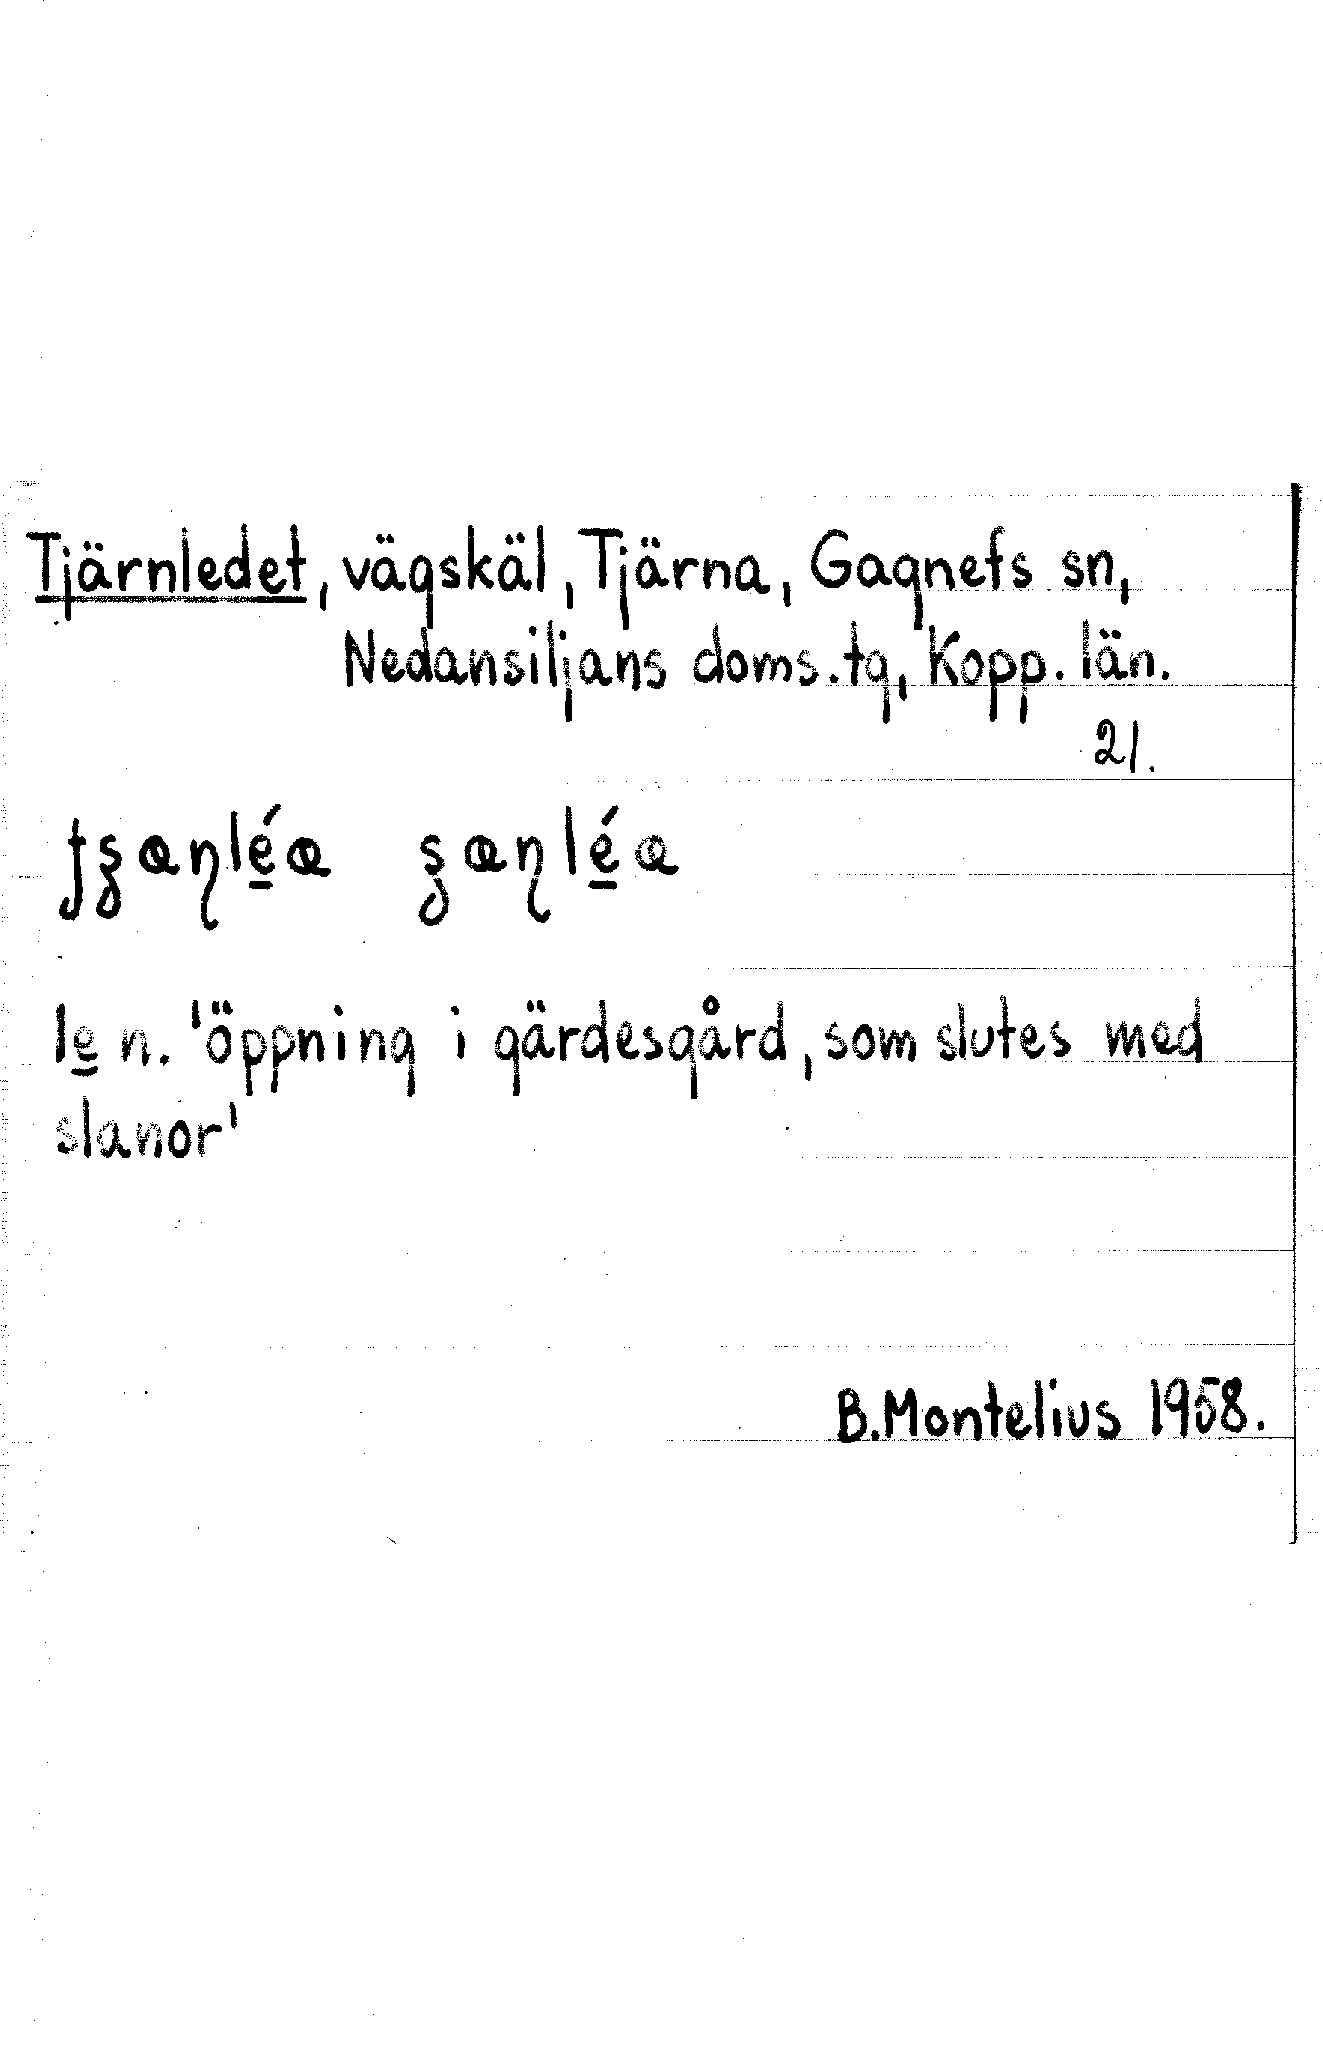 Tjärnledet, vägskäl, Tjärna, Gagnefs sn,
Nedansiljans doms.tg, Kopp. län.
21.
le n. 'öppning i gärdesgård, som slutes med
slanor'
B.Montelius 1958.